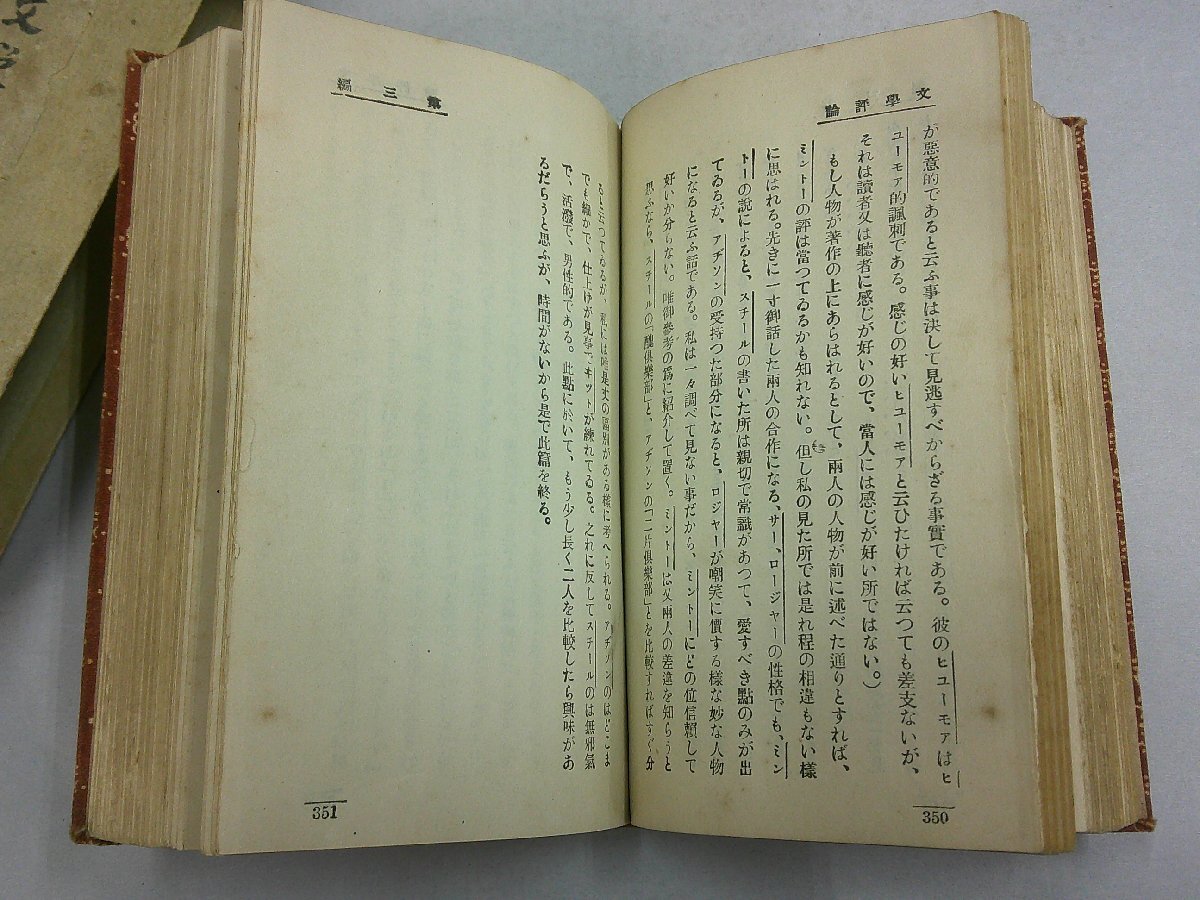 文學評論
が惡意的であると云ふ事は決して見逃すべからざる事實である。彼のヒユーモアはヒ
ユーモア的諷刺である。感じの好いヒユーモアと云ひたければ云つても差支ないが、
それは讀者又は聽者に感じが好いので、當人には感じが好い所ではない。）
もし人物が著作の上にあらはれるとして、兩人の人物が前に述べた通りとすれば、
ミントーの評は當つてゐるかも知れない。但し私の見た所では是れ程の相違もない樣
に思はれる。先きに一寸御話した兩人の合作になる、サー、ロージャーの性格でも、ミン
トーの說によると、スチールの書いた所は親切で常識があつて、愛すべき點のみが出
てゐるが、アヂソンの受持つた部分になると、ロジャーが嘲笑に價する樣な妙な人物
になると云ふ話である。私は一々調べて見ない事だから、ミントーにどの位信賴して
好いか分らない。唯御參考の爲に紹介して置く。ミントーは又兩人の差違を知らうと
思ふなら、スチールの「醜俱樂部」と、アヂソンの「二片俱樂部」とを比較すればすぐ分
350
第三編
ると云つてゐるが、私には唯是丈の區別がある樣に考へられる。アヂソンのはどこま
でも細かで、仕上げが見事でキツトが練れてゐる。之れに反してスチールのは無邪氣
で、活潑で、男性的である。此點に於いて、もう少し長く二人を比較したら興味があ
るだらうと思ふが、時間がないから是で此篇を終る。
351
文